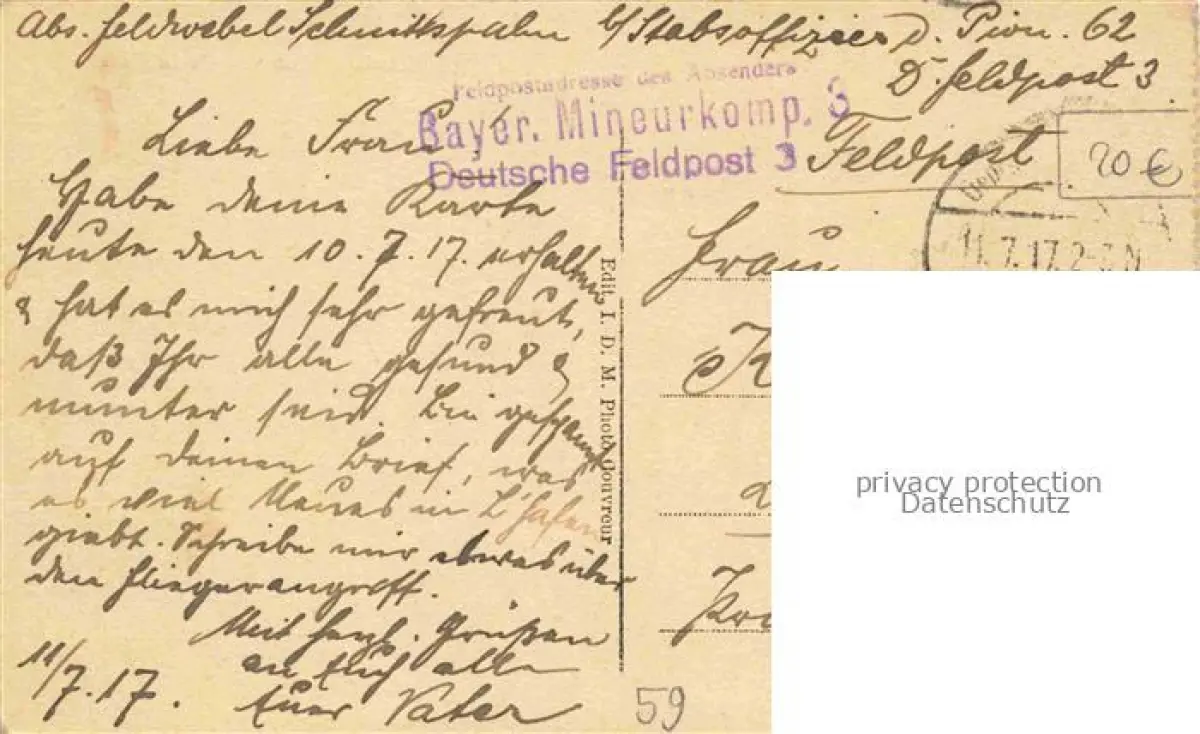 Abs. Feldwebel Schmittspahn b/ Stabsoffizier d. Pion. 62
D. Feldpost 3
Feldpostadresse des Absenders
Bayer. Mineurkomp. 3
Deutsche Feldpost 3
Feldpost
20 €
11.7.17.2-3 N
Liebe Frau!
Habe deine Karte
heute den 10.7.17. erhalten
& hat es mich sehr gefreut,
daß Ihr alle gesund &
munter seid. Bin gespannt
auf deinen Brief, was
es viel Neues in L'hafen
giebt. Schreibe mir etwas über
den Fliegerangriff.
Mit herzl. Grüßen
an Euch alle
Euer Vater
11/7.17.
Edit. I. D. M. Photo Couvreur
Frau
59
privacy protection
Datenschutz